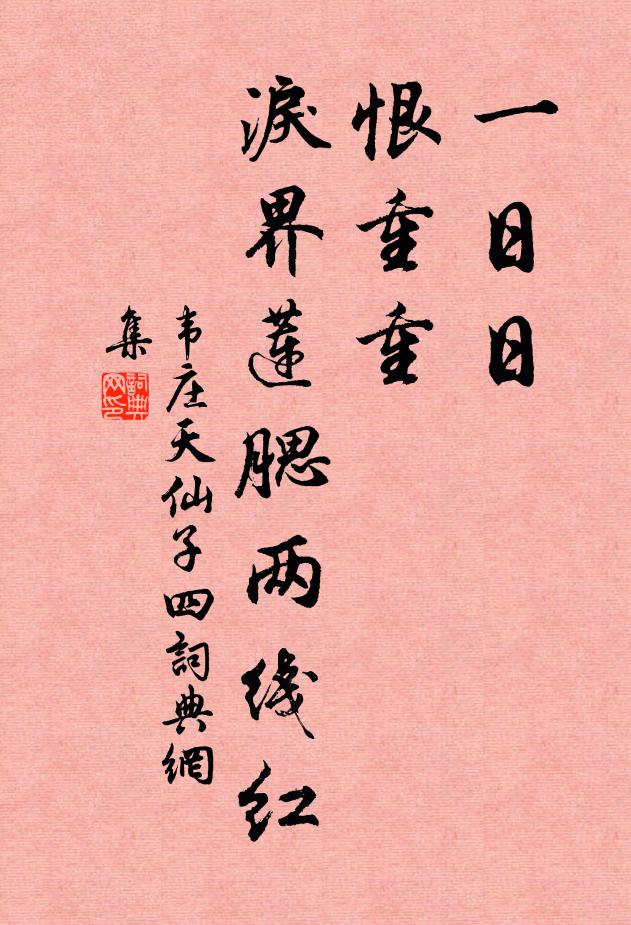 一日日
恨重重
淚界莲腮两线红
韦庄天仙子四詞典網
集
詞典
网印